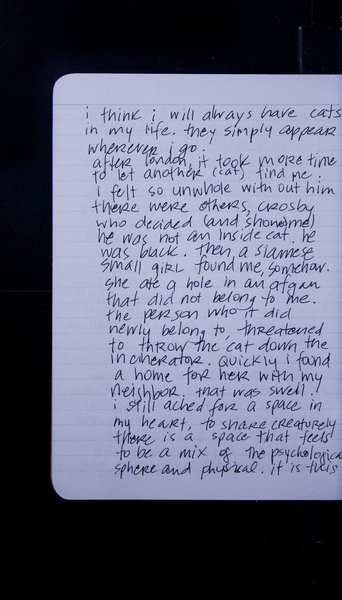 i think i will always have cats
in my life. they simply appear
wherever i go.
after london, it took more time
to let another (cat) find me.
i felt so unwhole with out him
there were others, crosby
who decided (and showed me)
he was not an inside cat. he
was black. then, a siamese
small girl found me, somehow.
she ate a hole in an afgan
that did not belong to me.
the person who it did
newly belong to, threatened
to throw the cat down the
incinerator. quickly i found
a home for her with my
neighbor. that was swell!
i still ached for a space in
my heart, to share creaturely
there is a space that feels
to be a mix of the psychologica
sphere and physical. it is this